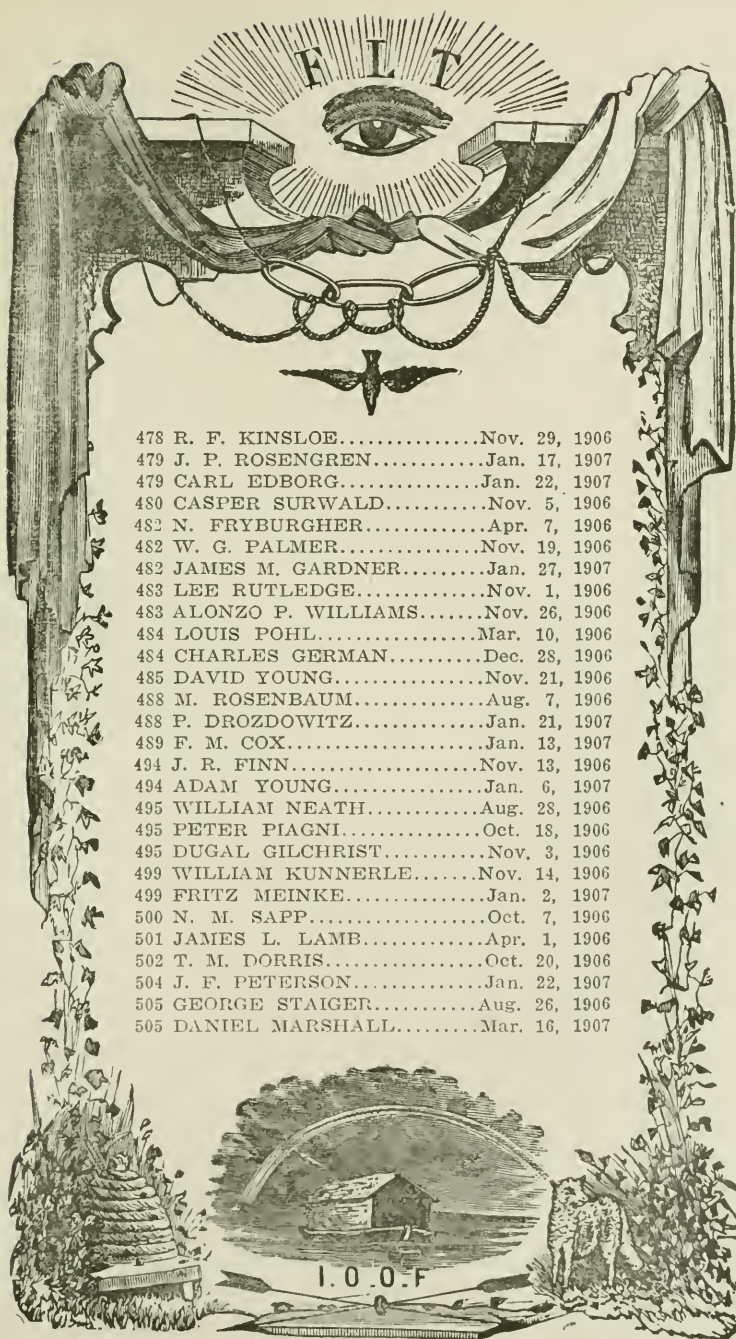 F L T
478 R. F. KINSLOE...............Nov. 29, 1906
479 J. P. ROSENGREN............Jan. 17, 1907
479 CARL EDBORG...............Jan. 22, 1907
480 CASPER SURWALD...........Nov. 5, 1906
482 N. FRYBURGHER.............Apr. 7, 1906
482 W. G. PALMER...............Nov. 19, 1906
482 JAMES M. GARDNER.........Jan. 27, 1907
483 LEE RUTLEDGE..............Nov. 1, 1906
483 ALONZO P. WILLIAMS.......Nov. 26, 1906
484 LOUIS POHL.................Mar. 10, 1906
484 CHARLES GERMAN..........Dec. 28, 1906
485 DAVID YOUNG...............Nov. 21, 1906
488 M. ROSENBAUM..............Aug. 7, 1906
488 P. DROZDOWITZ.............Jan. 21, 1907
489 F. M. COX...................Jan. 13, 1907
494 J. R. FINN...................Nov. 13, 1906
494 ADAM YOUNG................Jan. 6, 1907
495 WILLIAM NEATH............Aug. 28, 1906
495 PETER PIAGNI..............Oct. 18, 1906
495 DUGAL GILCHRIST...........Nov. 3, 1906
499 WILLIAM KUNNERLE.......Nov. 14, 1906
499 FRITZ MEINKE..............Jan. 2, 1907
500 N. M. SAPP..................Oct. 7, 1906
501 JAMES L. LAMB.............Apr. 1, 1906
502 T. M. DORRIS................Oct. 20, 1906
504 J. F. PETERSON.............Jan. 22, 1907
505 GEORGE STAIGER...........Aug. 26, 1906
505 DANIEL MARSHALL.........Mar. 16, 1907
I.O.O.F